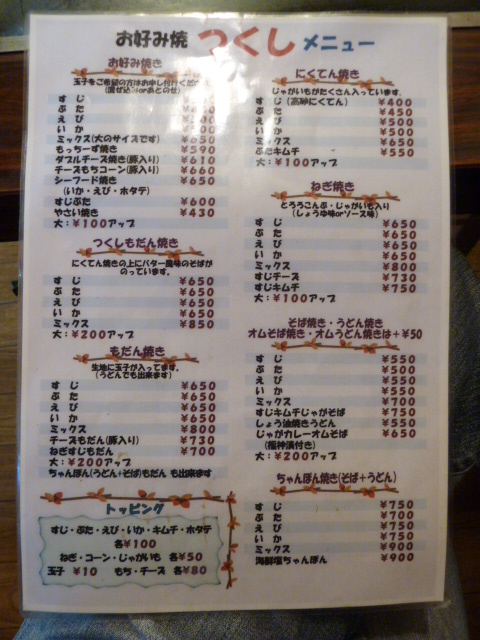 お好み焼 つくし メニュー
お好み焼き
玉子をご希望の方はお申し付けください
(混ぜ込みorあとのせ)
すじ
ぶた
えび
いか
ミックス(大のサイズです) ¥650
もっちーず焼き ¥590
ダブルチーズ焼き(豚入り) ¥610
チーズもちコーン(豚入り) ¥660
シーフード焼き ¥650
(いか・えび・ホタテ)
すじぶた ¥600
やさい焼き ¥430
大:¥100アップ
つくしもだん焼き
にくてん焼きの上にバター風味のそばが
のっています。
すじ ¥650
ぶた ¥650
えび ¥650
いか ¥650
ミックス ¥850
大:¥200アップ
もだん焼き
生地に玉子が入ってます。
(うどんでも出来ます)
すじ ¥650
ぶた ¥650
えび ¥650
いか ¥650
ミックス ¥800
チーズもだん(豚入り) ¥730
ねぎすじもだん ¥700
大:¥200アップ
ちゃんぽん(うどん+そば)もだん も出来ます
トッピング
すじ・ぶた・えび・いか・キムチ・ホタテ
各¥100
ねぎ・コーン・じゃがいも 各¥50
玉子 ¥10 もち・チーズ 各¥80
にくてん焼き
じゃがいもがたくさん入っています。
すじ(高砂にくてん) ¥400
ぶた ¥450
えび ¥500
いか ¥500
ミックス ¥650
ぶたキムチ ¥550
大:¥100アップ
ねぎ焼き
とろろこんぶ・じゃがいも入り
(しょうゆ味orソース味)
すじ ¥650
ぶた ¥650
えび ¥650
いか ¥650
ミックス ¥800
すじチーズ ¥730
すじキムチ ¥750
大:¥100アップ
そば焼き・うどん焼き
オムそば焼き・オムうどん焼きは+¥50
すじ ¥550
ぶた ¥550
えび ¥550
いか ¥550
ミックス ¥700
すじキムチじゃがそば ¥750
しょう油焼きうどん ¥550
じゃがカレーオムそば ¥650
(福神漬付き)
大:¥200アップ
ちゃんぽん焼き(そば+うどん)
すじ ¥750
ぶた ¥700
えび ¥750
いか ¥750
ミックス ¥900
海鮮塩ちゃんぽん ¥900